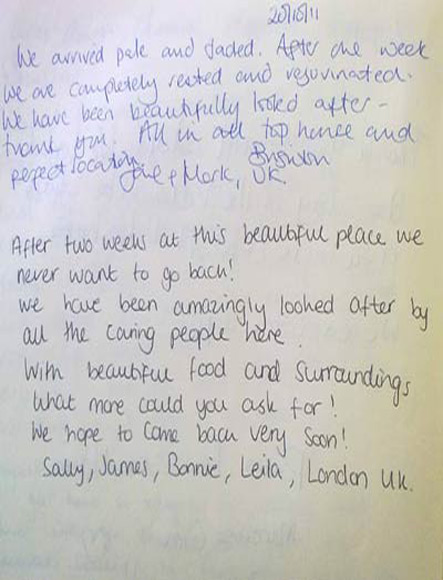 20/10/11
We arrived pale and jaded. After one week
we are completely rested and rejuvinated.
We have been beautifully looked after -
thank you. All in all top hence and
perfect location. Brighton
Jane & Mark, UK.
After two weeks at this beautiful place we
never want to go back!
we have been amazingly looked after by
all the caring people here.
With beautiful food and surroundings
what more could you ask for!
We hope to come back very soon!
Sally, James, Bonnie, Leila, London UK.